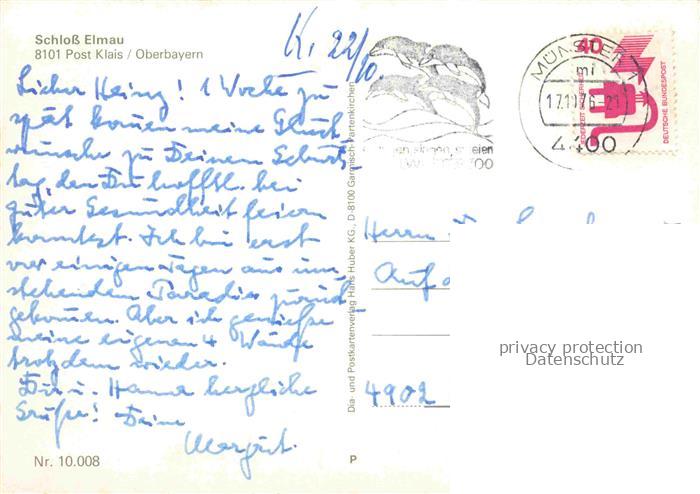 Schloß Elmau
8101 Post Klais / Oberbayern
K. 22/10.
Lieber Heinz! 1 Woche zu
spät kommen meine Glück
wünsche zu Deinem Geburts-
tag, den Du hoffentl. bei
guter Gesundheit feiern
konntest. Ich bin erst
vor einigen Tagen aus um-
stehendem Paradies zurück
gekommen. Aber ich genieße
meine eigenen 4 Wände
trotzdem wieder.
Dir u. Hanna herzliche
Grüße! Deine
Margret.
Nr. 10.008
P
Dia- und Postkartenverlag Hans Huber KG., D-8100 Garmisch-Partenkirchen
MÜNSTER
mi
17.10.76-21
4400
40
JEDERZEIT SICHERHEIT
DEUTSCHE BUNDESPOST
Herrn
Auf
4902
privacy protection
Datenschutz